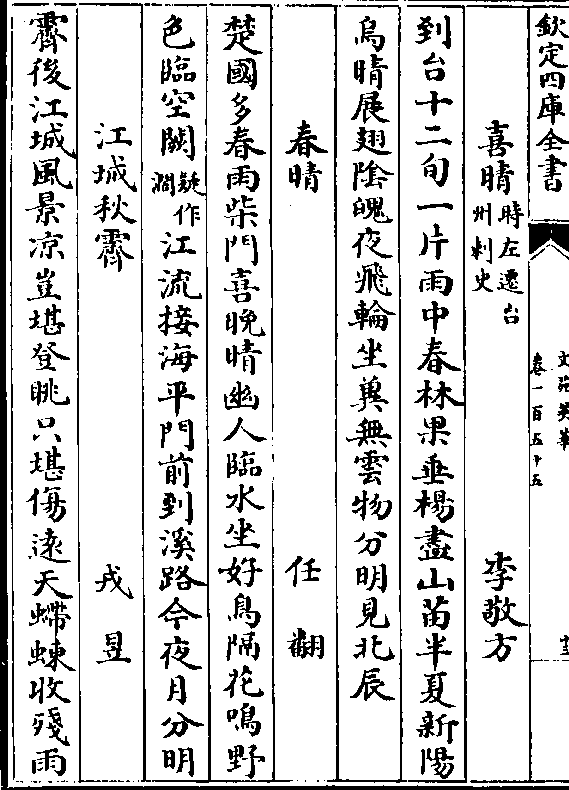 欽定四庫全書
文苑英華
卷一百五十五
喜晴時左遷台州刺史 李敬方
到台十二旬一片雨中春林果垂楊盡山苗半夏新陽
烏晴展翅陰魄夜飛輪坐冀無雲物分明見北辰
春晴 任翻
楚國多春雨柴門喜晚晴幽人臨水坐好鳥隔花鳴野
色臨空闕疑作濶江流接海平門前到溪路今夜月分明
江城秋霽 戎昱
霽後江城風景凉豈堪登眺只堪傷遠天螮蝀收殘雨